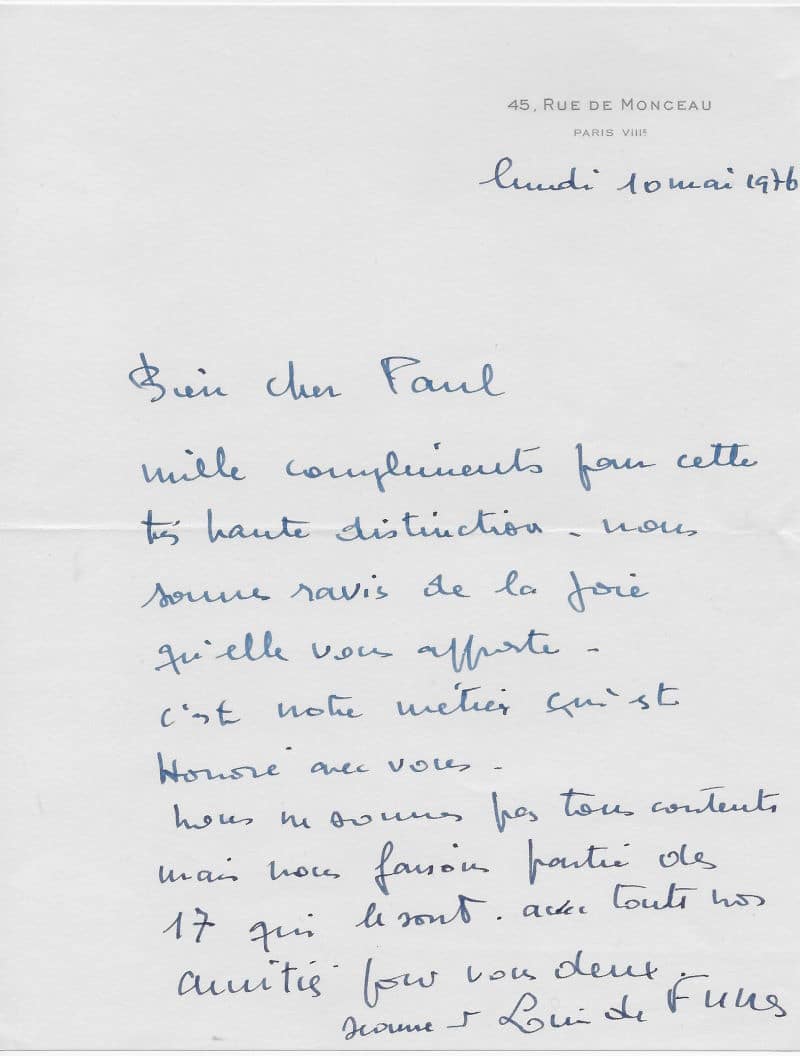 45, RUE DE MONCEAU
PARIS VIIIE
lundi 10 mai 1976
Bien cher Paul
mille compliments pour cette
très haute distinction - nous
sommes ravis de la joie
qu'elle vous apporte -
c'est notre métier qui est
Honoré avec vous -
nous ne sommes pas tous contents
mais nous faisons partie des
17 qui le sont. avec toutes nos
amitiés pour vous deux.
Jeanne et Louis de Funes